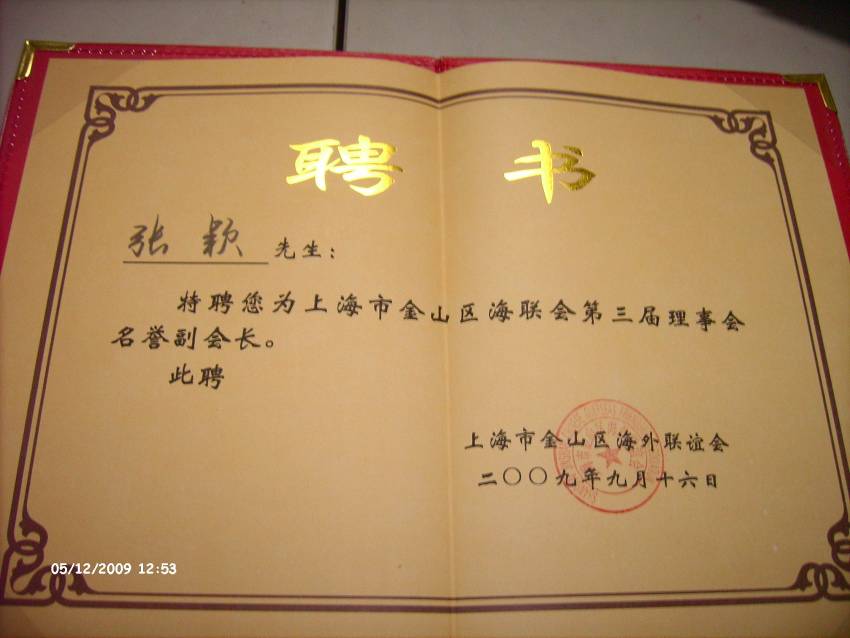 聘书
张颖 先生：
特聘您为上海市金山区海联会第三届理事会
名誉副会长。
此聘
上海市金山区海外联谊会
二〇〇九年九月十六日
05/12/2009 12:53